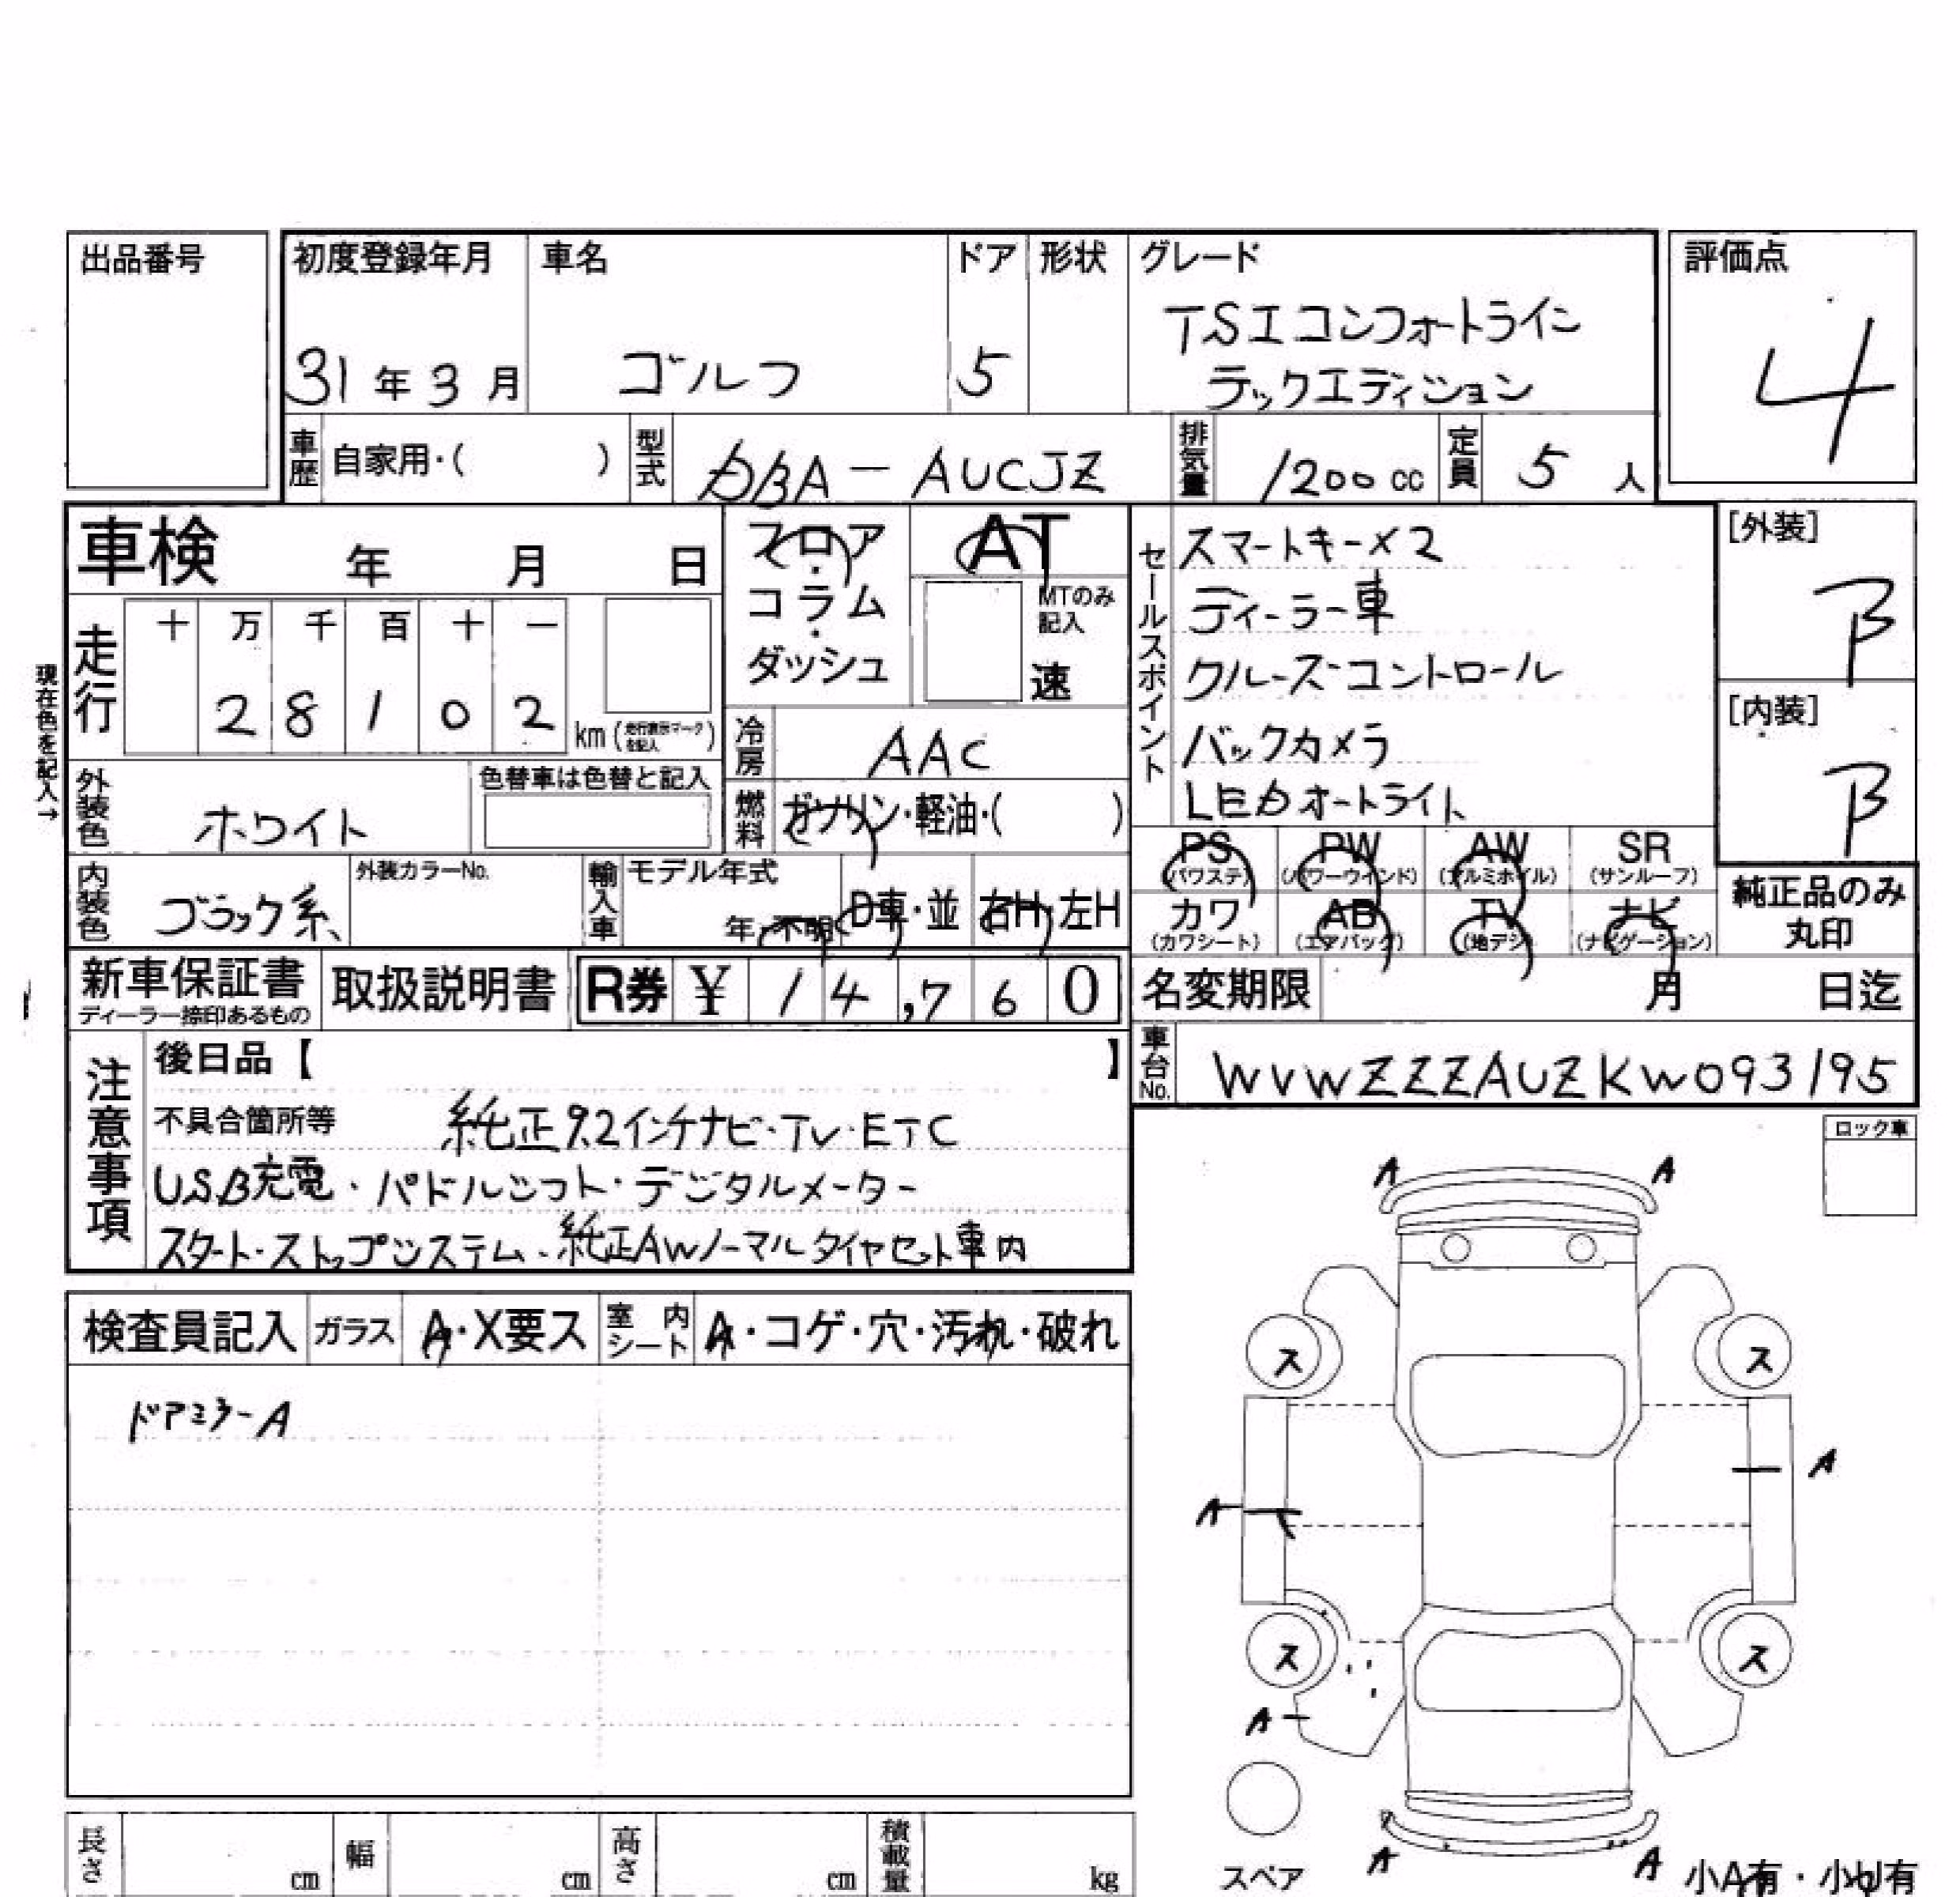 出品番号
初度登録年月 車名 ドア 形状 グレード 評価点
TSIコンフォートライン
31年3月 ゴルフ 5 テックエディション 4
車歴 自家用・( ) 型式 DBA-AUCJZ 排気量 1200cc 定員 5人
車検 年 月 日
フロア・コラム・ダッシュ
AT
MTのみ記入
速
セールスポイント
スマートキー×2
ディーラー車
クルーズコントロール
バックカメラ
LEDオートライト
[外装] B
[内装] B
現在色を記入→
走行 十 万 千 百 十 一
2 8 1 0 2 km(走行表示マークを記入)
冷房 AAC
外装色 ホワイト 色替車は色替と記入
燃料 ガソリン・軽油・( )
PS(パワステ) PW(パワーウインド) AW(アルミホイル) SR(サンルーフ)
カワ(カワシート) AB(エアバッグ) TV(地デジ) ナビ(ナビゲーション)
純正品のみ丸印
内装色 ブラック系 外装カラーNo. 輸入車 モデル年式 年・不明 D車・並 右H・左H
新車保証書 ディーラー捺印あるもの 取扱説明書 R券 ¥ 14,760
名変期限 月 日迄
車台No. WVWZZZAUZKW093195
注意事項
後日品【 】
不具合箇所等 純正9.2インチナビ・TV・ETC
USB充電・パドルシフト・デジタルメーター
スタート・ストップシステム・純正AWノーマルタイヤセット車内
ロック車
検査員記入 ガラス A・X要ス 室内シート A・コゲ・穴・汚れ・破れ
ドアミラーA
A A
ス ス
A
A
ス ス
A
A A
スペア 小A有・小U有
長さ cm 幅 cm 高さ cm 積載量 kg